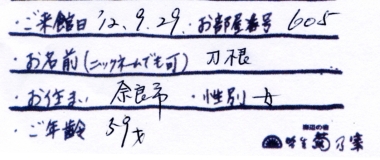 ・ご来館日 '12.9.29 ・お部屋番号 605
・お名前(ニックネームでも可) 刀根
・お住まい 奈良市 ・性別 女
・ご年齢 59才
海辺の宿